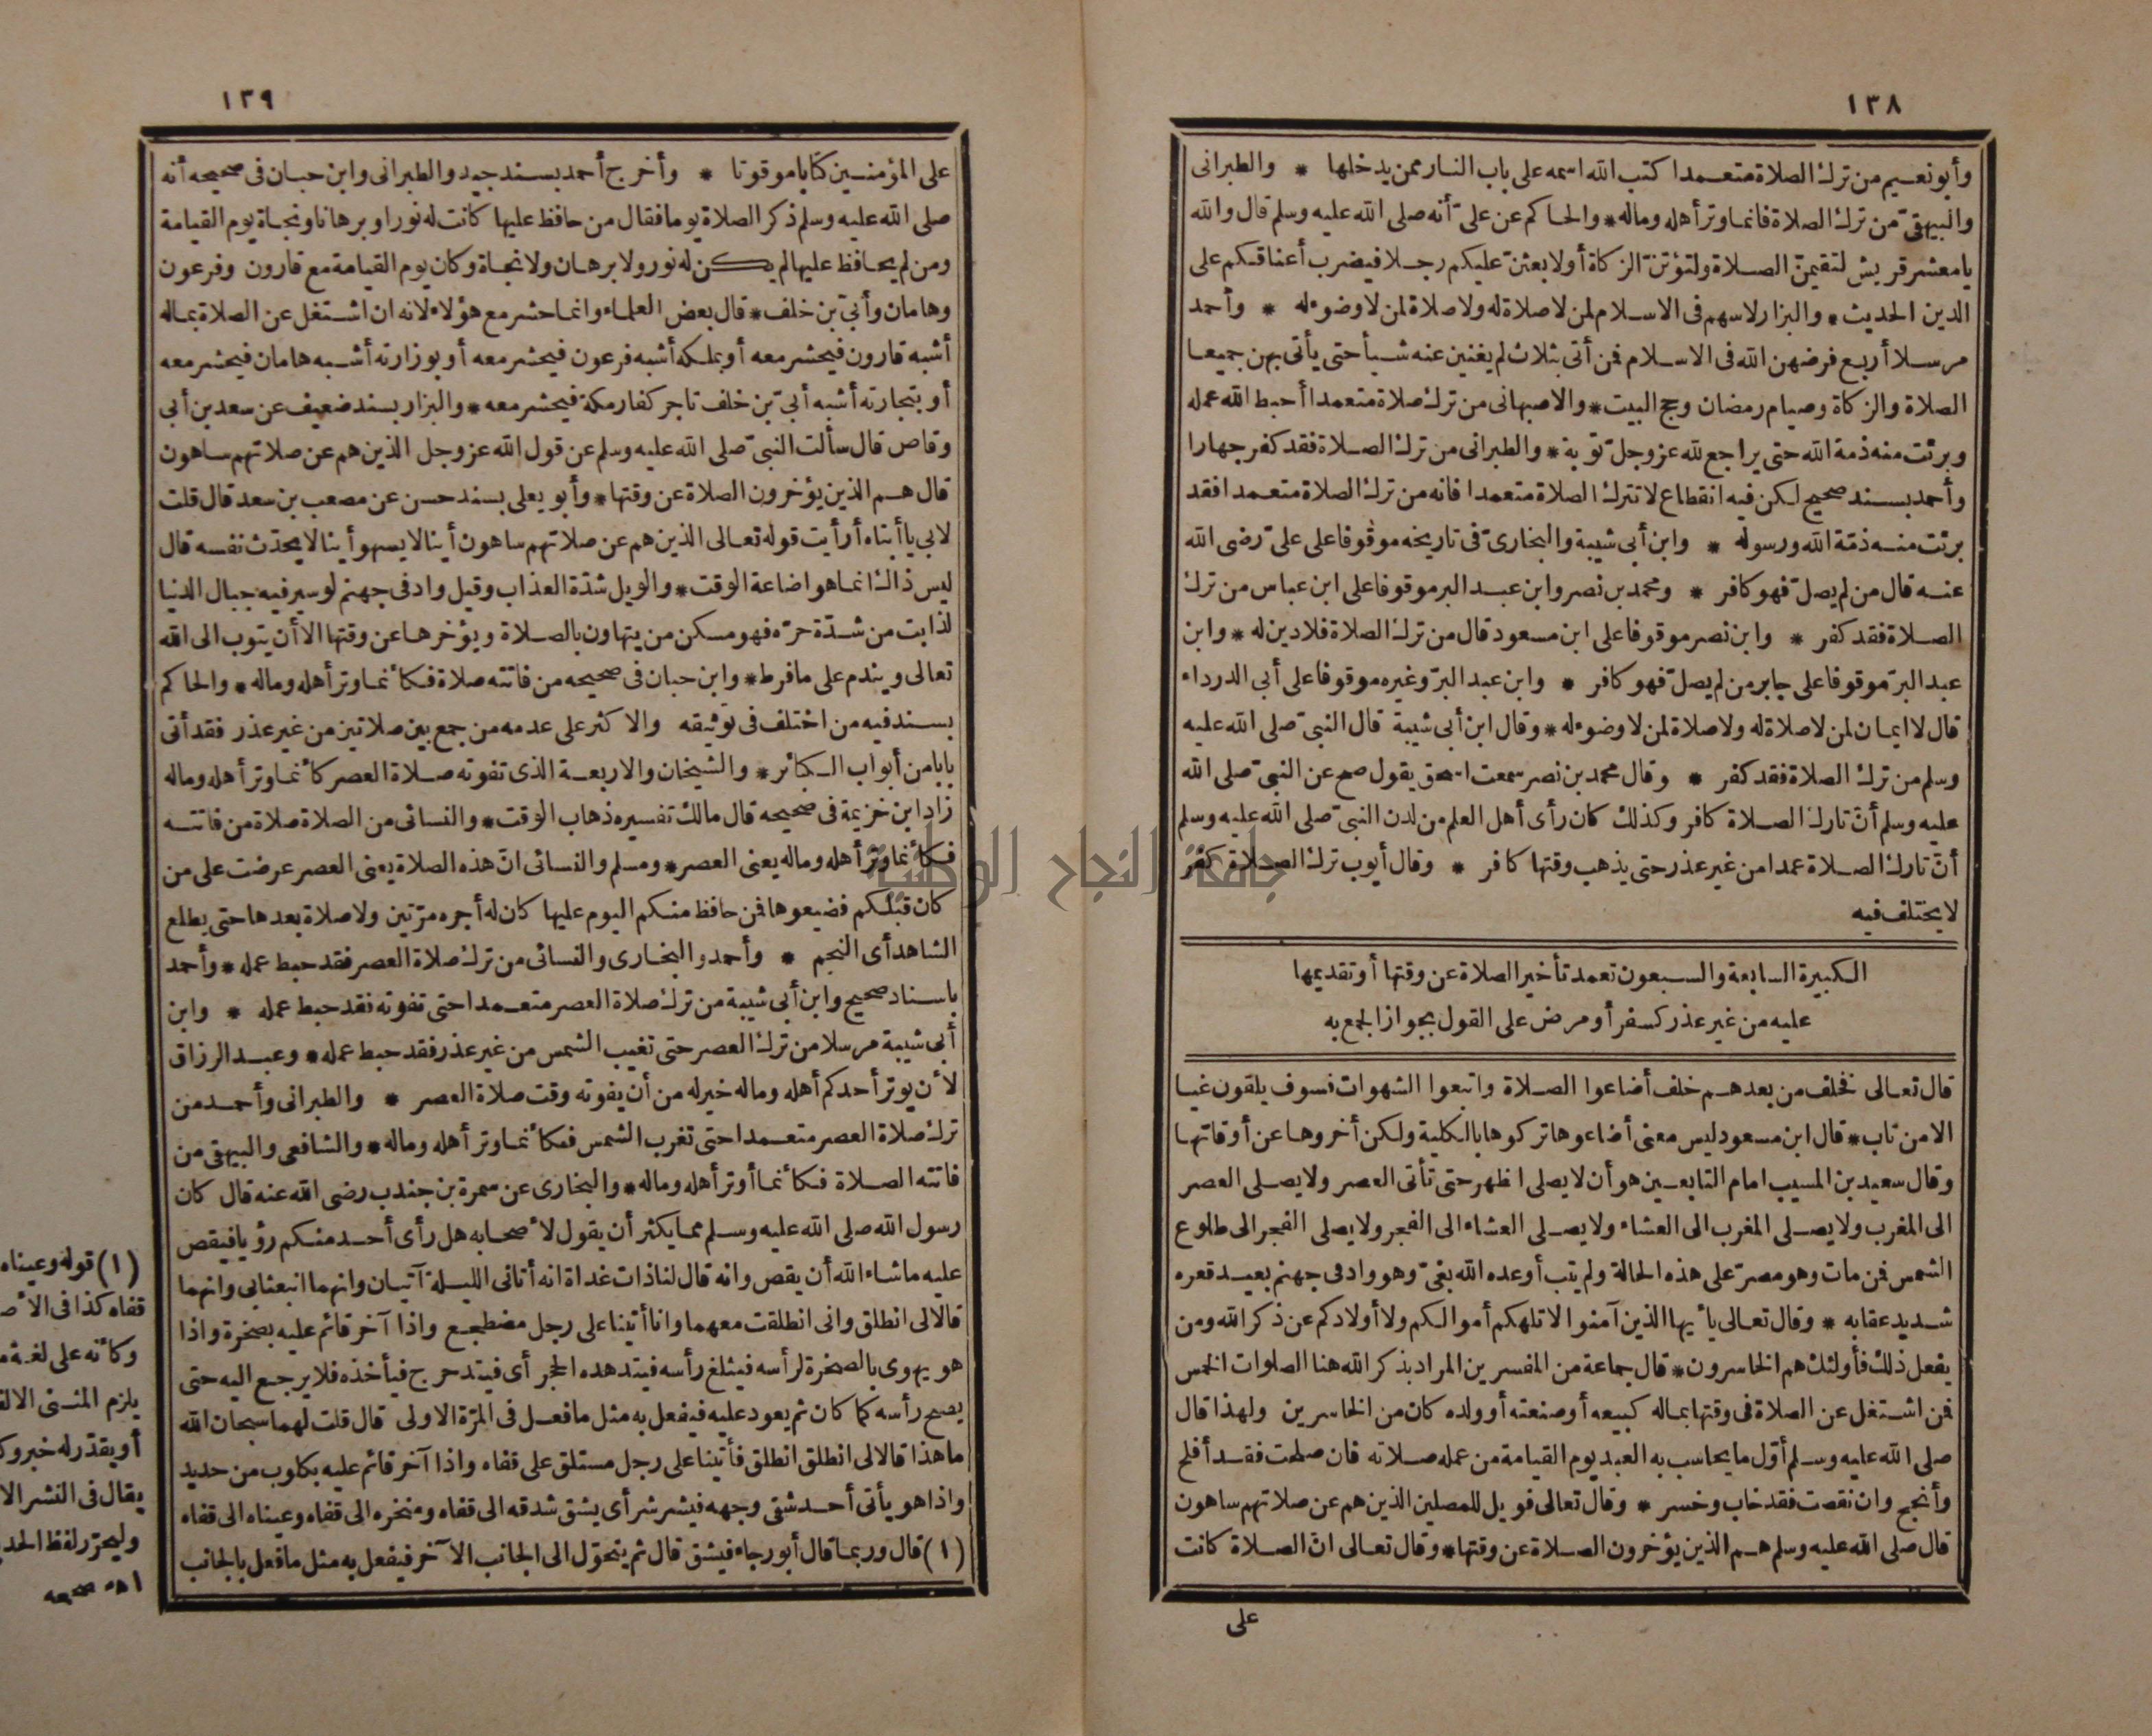 ١٣٨
وأبو نعيم من ترك الصلاة متعمدا كتب الله اسمه على باب النار ممن يدخلها * والطبرانى
والبيهقىّ من ترك الصلاة فانما وتر أهله وماله * والحاكم عن علىّ أنه صلى الله عليه وسلم قال والله
يا معشر قريش لتقيمنّ الصلاة ولتؤتنّ الزكاة أو لابعثنّ عليكم رجلا فيضرب أعناقكم على
الدين الحديث * والبزار لا سهم فى الاسلام لمن لا صلاة له ولا صلاة لمن لا وضوء له * وأحمد
مرسلا أربع فرضهن الله فى الاسلام فمن أتى بثلاث لم يغنين عنه شيأ حتى يأتى بهن جميعا
الصلاة والزكاة وصيام رمضان وحج البيت * والاصبهانى من ترك صلاة متعمدا أحبط الله عمله
وبرئت منه ذمة الله حتى يراجع لله عز وجل توبة * والطبرانى من ترك الصلاة فقد كفر جهارا
وأحمد بسند صحيح لكن فيه انقطاع لا تترك الصلاة متعمدا فانه من ترك الصلاة متعمدا فقد
برئت منه ذمّة الله ورسوله * وابن أبى شيبة والبخارىّ فى تاريخه موقوفا على علىّ رضى الله
عنه قال من لم يصلّ فهو كافر * ومحمد بن نصر وابن عبد البر موقوفا على ابن عباس من ترك
الصلاة فقد كفر * وابن نصر موقوفا على ابن مسعود قال من ترك الصلاة فلا دين له * وابن
عبد البرّ موقوفا على جابر من لم يصلّ فهو كافر * وابن عبد البرّ وغيره موقوفا على أبى الدرداء
قال لا ايمان لمن لا صلاة له ولا صلاة لمن لا وضوء له * وقال ابن أبى شيبة قال النبىّ صلى الله عليه
وسلم من ترك الصلاة فقد كفر * وقال محمد بن نصر سمعت اسحق يقول صح عن النبىّ صلى الله
عليه وسلم أنّ تارك الصلاة كافر وكذلك كان رأى أهل العلم من لدن النبىّ صلى الله عليه وسلم
أنّ تارك الصلاة عمدا من غير عذر حتى يذهب وقتها كافر * وقال أيوب ترك الصلاة كفر
لا يختلف فيه
الكبيرة السابعة والسبعون تعمد تأخير الصلاة عن وقتها أو تقديمها
عليه من غير عذر كسفر أو مرض على القول بجواز الجمع به
قال تعالى فخلف من بعدهم خلف أضاعوا الصلاة واتبعوا الشهوات فسوف يلقون غيا
الا من تاب * قال ابن مسعود ليس معنى أضاعوها تركوها بالكلية ولكن أخروها عن أوقاتها
وقال سعيد بن المسيب امام التابعين هو أن لا يصلى الظهر حتى تأتى العصر ولا يصلى العصر
الى المغرب ولا يصلى المغرب الى العشاء ولا يصلى العشاء الى الفجر ولا يصلى الفجر الى طلوع
الشمس فمن مات وهو مصرّ على هذه الحالة ولم يتب أوعده الله بغىّ وهو واد فى جهنم بعيد قعره
شديد عقابه * وقال تعالى يا أيها الذين آمنوا لا تلهكم أموالكم ولا أولادكم عن ذكر الله ومن
يفعل ذلك فأولئك هم الخاسرون * قال جماعة من المفسرين المراد بذكر الله هنا الصلوات الخمس
فمن اشتغل عن الصلاة فى وقتها بماله كبيعه أو صنعته أو ولده كان من الخاسرين ولهذا قال
صلى الله عليه وسلم أوّل ما يحاسب به العبد يوم القيامة من عمله صلاته فان صلحت فقد أفلح
وأنجح وان نقصت فقد خاب وخسر * وقال تعالى فويل للمصلين الذين هم عن صلاتهم ساهون
قال صلى الله عليه وسلم هم الذين يؤخرون الصلاة عن وقتها * وقال تعالى انّ الصلاة كانت
على
١٣٩
على المؤمنين كتابا موقوتا * وأخرج أحمد بسند جيد والطبرانى وابن حبان فى صحيحه أنه
صلى الله عليه وسلم ذكر الصلاة يوما فقال من حافظ عليها كانت له نورا وبرهانا ونجاة يوم القيامة
ومن لم يحافظ عليها لم يكن له نور ولا برهان ولا نجاة وكان يوم القيامة مع قارون وفرعون
وهامان وأبىّ بن خلف * قال بعض العلماء وانما حشر مع هؤلاء لانه ان اشتغل عن الصلاة بماله
أشبه قارون فيحشر معه أو بملكه أشبه فرعون فيحشر معه أو بوزارته أشبه هامان فيحشر معه
أو بتجارته أشبه أبىّ بن خلف تاجر كفار مكة فيحشر معه * والبزار بسند ضعيف عن سعد بن أبى
وقاص قال سألت النبىّ صلى الله عليه وسلم عن قول الله عز وجل الذين هم عن صلاتهم ساهون
قال هم الذين يؤخرون الصلاة عن وقتها * وأبو يعلى بسند حسن عن مصعب بن سعد قال قلت
لابى يا أبتاه أرأيت قوله تعالى الذين هم عن صلاتهم ساهون أينا لا يسهو أينا لا يحدّث نفسه قال
ليس ذاك انما هو اضاعة الوقت * والويل شدّة العذاب وقيل واد فى جهنم لو سير فيه جبال الدنيا
لذابت من شدّة حرّه فهو مسكن من يتهاون بالصلاة ويؤخرها عن وقتها الا أن يتوب الى الله
تعالى ويندم على ما فرط * وابن حبان فى صحيحه من فاتته صلاة فكأنما وتر أهله وماله * والحاكم
بسند فيه من اختلف فى توثيقه والاكثر على عدمه من جمع بين صلاتين من غير عذر فقد أتى
بابا من أبواب الكبائر * والشيخان والاربعة الذى تفوته صلاة العصر كأنما وتر أهله وماله
زاد ابن خزيمة فى صحيحه قال مالك تفسيره ذهاب الوقت * والنسائى من الصلاة صلاة من فاتته
فكأنما وتر أهله وماله يعنى العصر * ومسلم والنسائى انّ هذه الصلاة يعنى العصر عرضت على من
كان قبلكم فضيعوها فمن حافظ منكم اليوم عليها كان له أجره مرّتين ولا صلاة بعدها حتى يطلع
الشاهد أى النجم * وأحمد والبخارى والنسائى من ترك صلاة العصر فقد حبط عمله * وأحمد
باسناد صحيح وابن أبى شيبة من ترك صلاة العصر متعمدا حتى تفوته فقد حبط عمله * وابن
أبى شيبة مرسلا من ترك العصر حتى تغيب الشمس من غير عذر فقد حبط عمله * وعبد الرزاق
لأن يوتر أحدكم أهله وماله خير له من أن يفوته وقت صلاة العصر * والطبرانى وأحمد من
ترك صلاة العصر متعمدا حتى تغرب الشمس فكأنما وتر أهله وماله * والشافعى والبيهقى من
فاتته الصلاة فكأنما أوتر أهله وماله * والبخارى عن سمرة بن جندب رضى الله عنه قال كان
رسول الله صلى الله عليه وسلم مما يكثر أن يقول لأصحابه هل رأى أحد منكم رؤيا فيقص
عليه ما شاء الله أن يقص وانه قال لنا ذات غداة انه أتانى الليلة آتيان وانهما انبعثانى وانهما
قالا لى انطلق وانى انطلقت معهما وانا أتينا على رجل مضطجع واذا آخر قائم عليه بصخرة واذا
هو يهوى بالصخرة لرأسه فيثلغ رأسه فيتدهده الحجر أى فيتدحرج فيأخذه فلا يرجع اليه حتى
يصح رأسه كما كان ثم يعود عليه فيفعل به مثل ما فعل فى المرّة الاولى قال قلت لهما سبحان الله
ما هذا قالا لى انطلق انطلق فأتينا على رجل مستلق على قفاه واذا آخر قائم عليه بكلوب من حديد
واذا هو يأتى أحد شقى وجهه فيشرشر أى يشق شدقه الى قفاه ومنخره الى قفاه وعيناه الى قفاه
(١) قال وربما قال أبو رجاء فيشق قال ثم يتحوّل الى الجانب الآخر فيفعل به مثل ما فعل بالجانب
(١) قوله وعيناه
قفاه كذا فى الأص
وكأنه على لغة م
يلزم المثنى الال
أو يقدّر له خبر وك
يقال فى النشر الا
وليحرّر لفظ الحد
اه مصححه
جامعة النجاح الوطنية